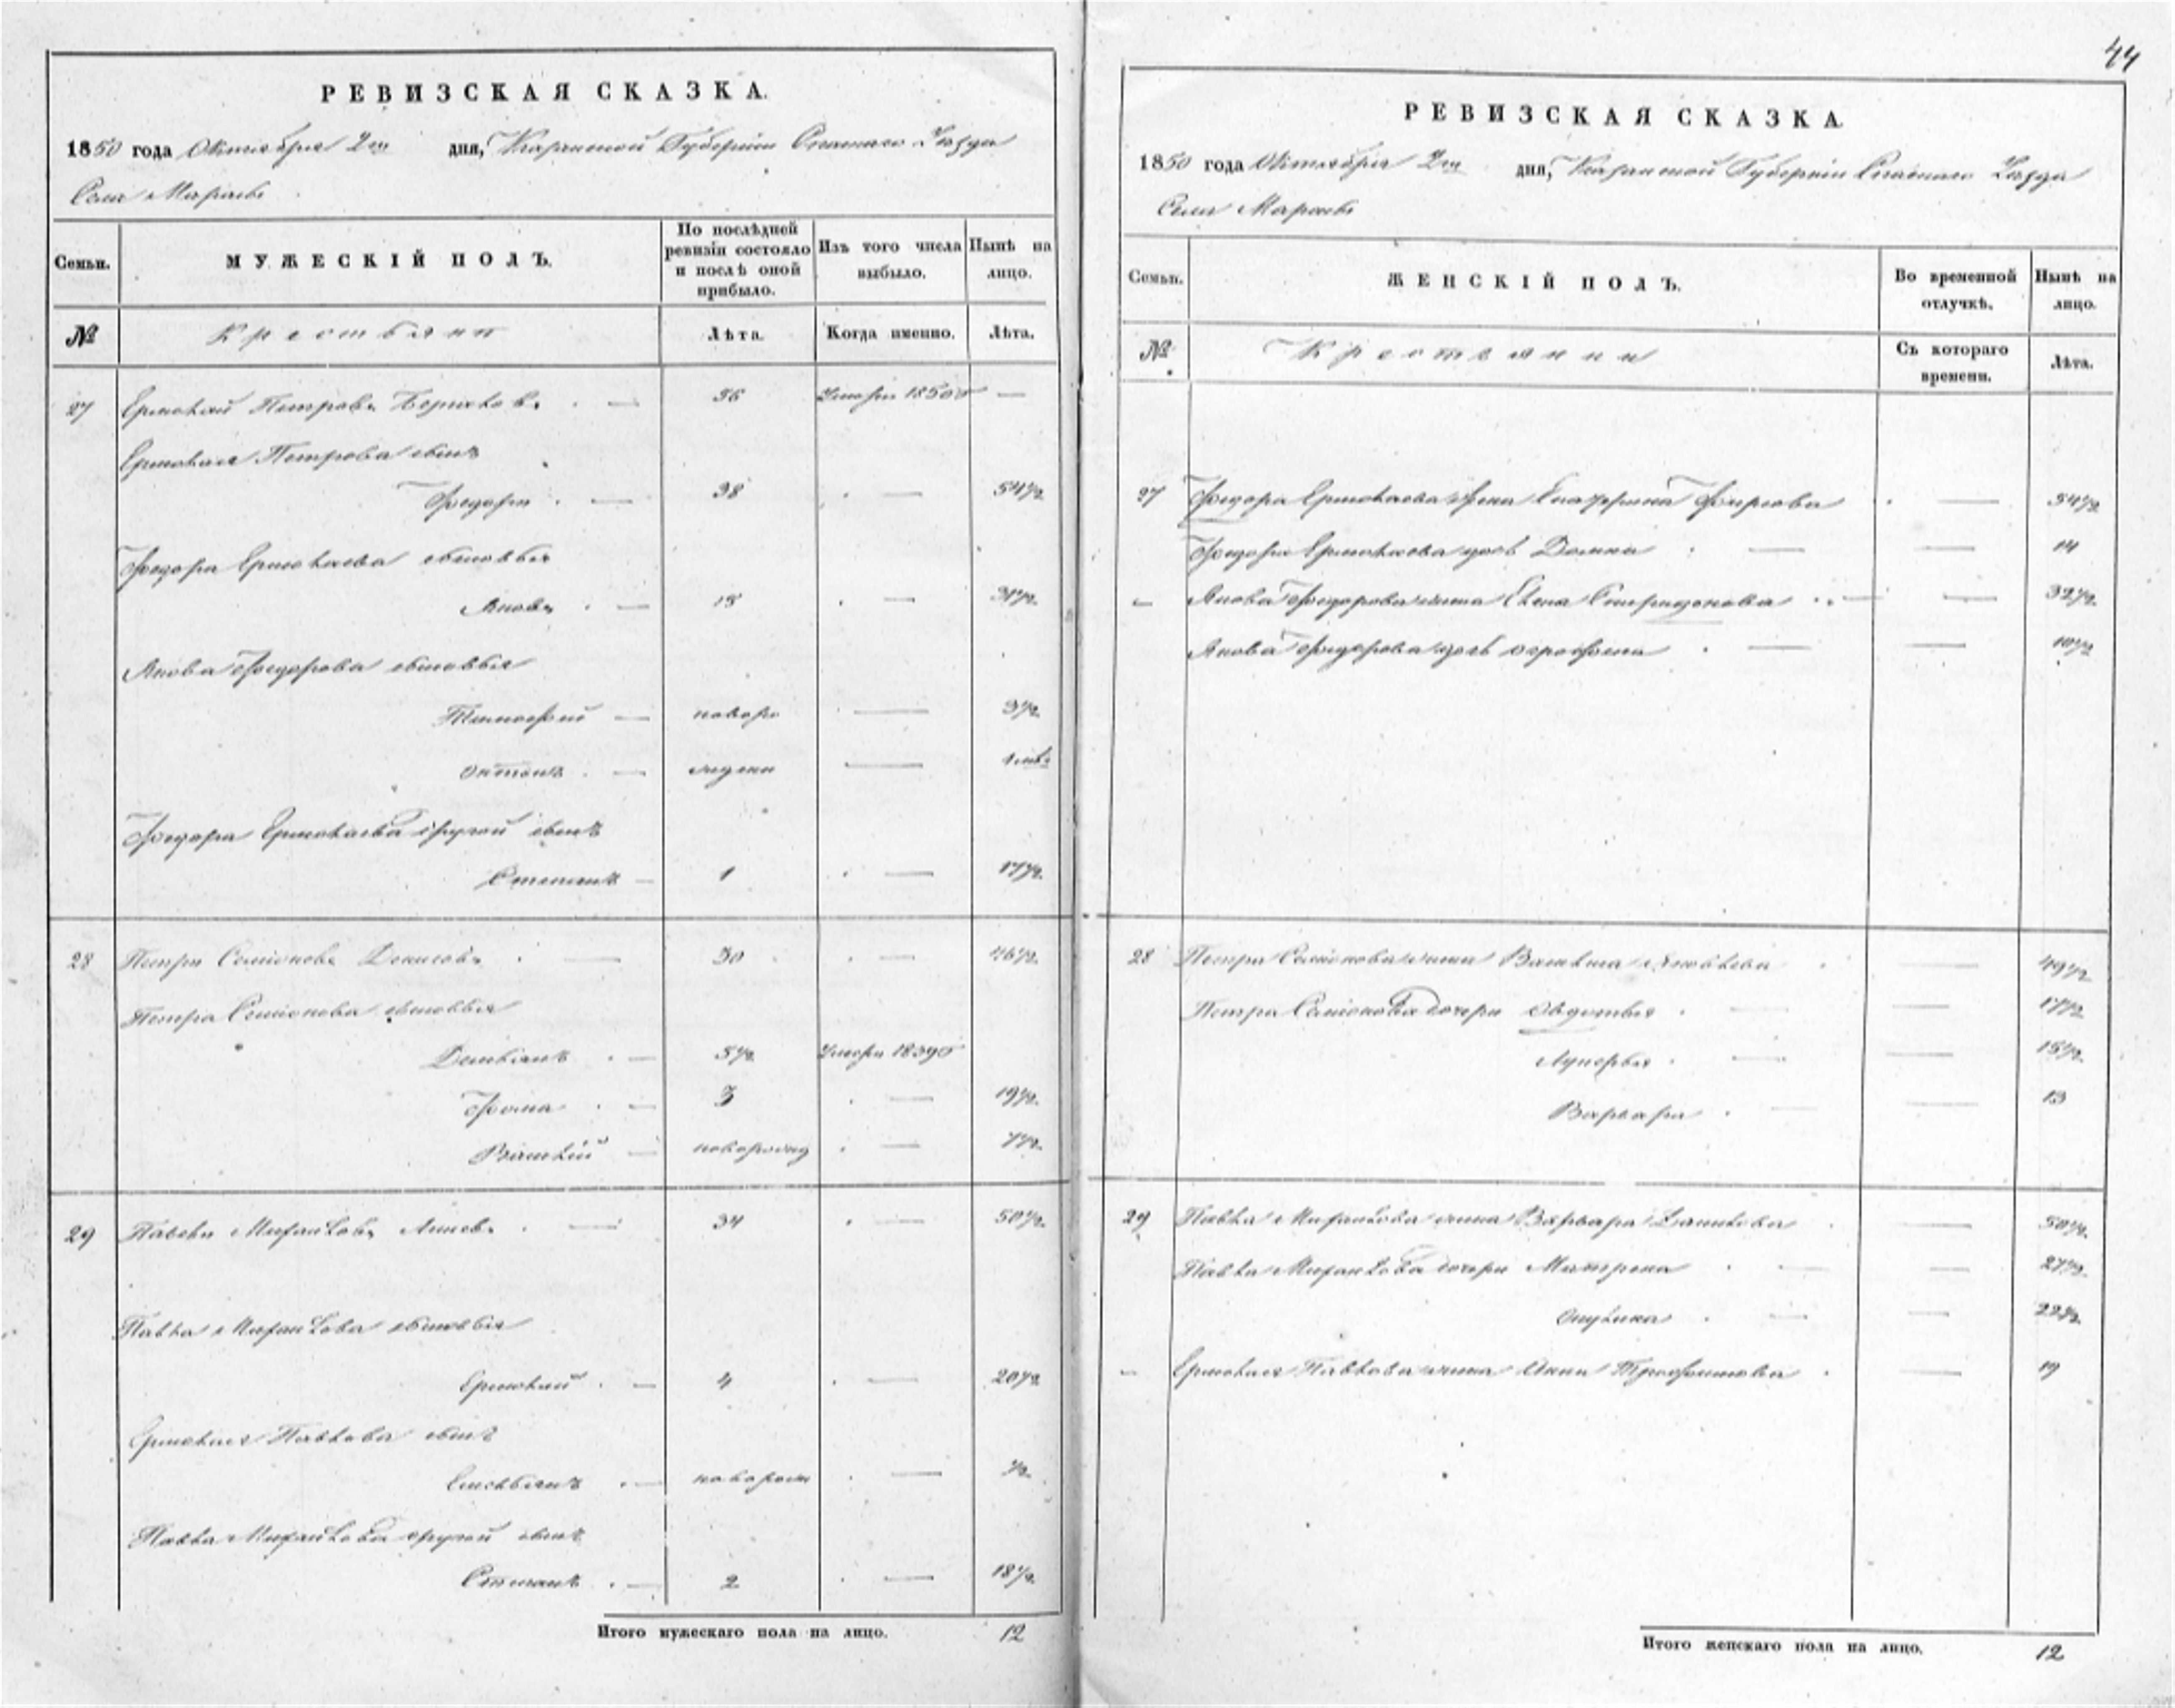 РЕВИЗСКАЯ СКАЗКА.
1850 года Октября 2го дня, Казанской Губернiи Спаскаго Уезда
Села
Семьи. МУЖЕСКIЙ ПОЛЪ. По послѣдней ревизiи состояло и послѣ оной прибыло. Изъ того числа выбыло. Нынѣ на лицо.
№ Крестьяни Лѣта. Когда именно. Лѣта.
27 Ермолай Петровъ — 56 Умеръ 1850 —
Ермолая Петрова сынъ
Федоръ — 38 — 54½
Федора Ермолаева сыновья
Яковъ — 15 — 31½
Якова Федорова сыновья
Тимофей — новоро — 3½
Антонъ — ждены —
Федора Ермолаева другой сынъ
Степанъ — 1 — 17½
28 Петръ Семіоновъ Денисовъ — 30 — 46½
Петра Семіонова сыновья
Демьянъ — 5½ Умеръ 1839
Фома — 3 — 19½
Василій — новорожд — 7½
29 Павелъ Михайловъ — 34 — 50½
Павла Михайлова сыновья
Ермолай — 4 — 20½
Ермолая Павлова сынъ
— новорож — ½
Павла Михайлова другой сынъ
Степанъ — 2 — 18½
Итого мужескаго пола на лицо. 12
44
РЕВИЗСКАЯ СКАЗКА
1850 года Октября 2го дня, Казанской Губернiи Спаскаго Уезда
Села
Семьи. ЖЕНСКIЙ ПОЛЪ. Во временной отлучкѣ. Нынѣ на лицо.
№ Крестьянки Съ котораго времени. Лѣта.
27 Федора Ермолаева жена Екатерина Фирсова — 54½
Федора Ермолаева дочь Домна — 14
— Якова Федорова жена Елена Спиридонова — 32½
Якова Федорова дочь — 10½
28 Петра Семіонова жена Яковлева — 49½
Петра Семіонова дочери Авдотья — 17½
Лукерья — 15½
Варвара — 13
29 Павла Михайлова жена Варвара — 50½
Павла Михайлова дочери Матрена — 27½
Акулина — 22½
— Ермолая Павлова жена Анна Трофимова — 19
Итого женскаго пола на лицо. 12